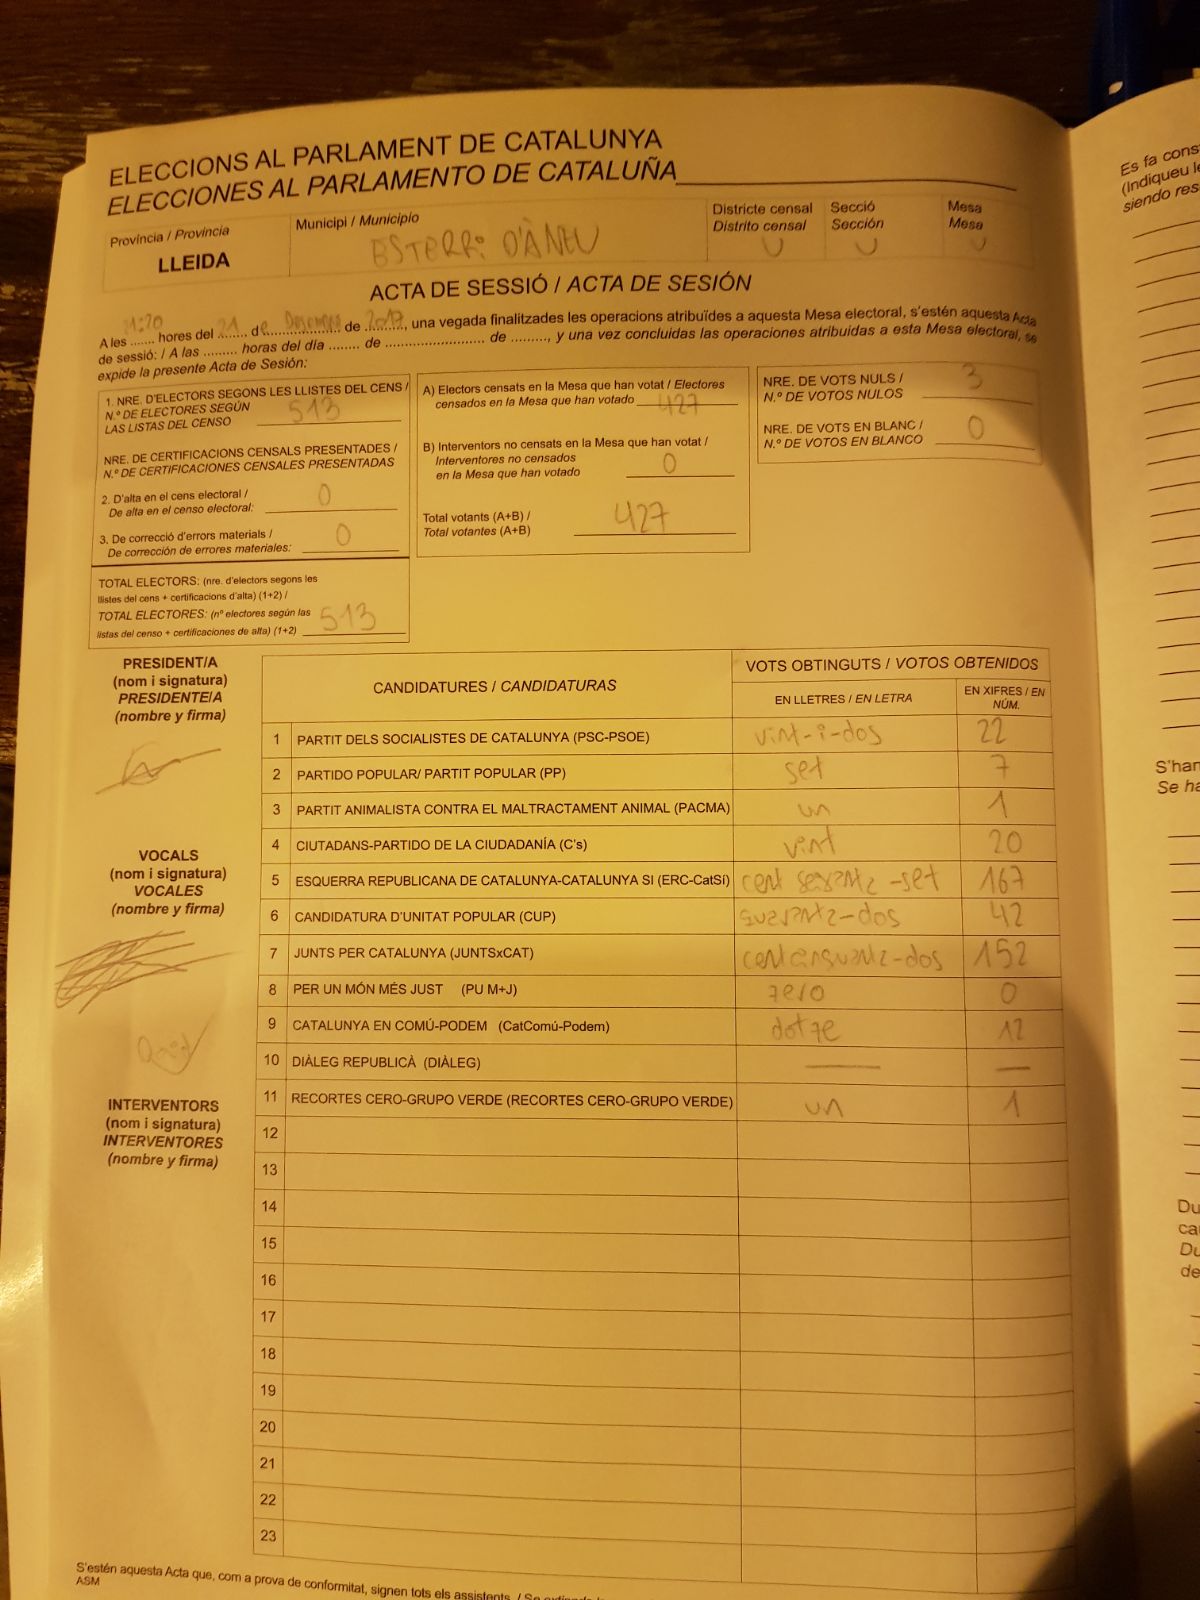 ELECCIONS AL PARLAMENT DE CATALUNYA
ELECCIONES AL PARLAMENTO DE CATALUÑA
Província / Provincia
LLEIDA
Municipi / Municipio
ESTERRI D'ÀNEU
Districte censal
Distrito censal
U
Secció
Sección
U
Mesa
Mesa
U
ACTA DE SESSIÓ / ACTA DE SESIÓN
A les 21:20 hores del 21 de Desembre de 2017, una vegada finalitzades les operacions atribuïdes a aquesta Mesa electoral, s'estén aquesta Acta
de sessió: / A las ......... horas del día ........ de ......................... de ........., y una vez concluidas las operaciones atribuidas a esta Mesa electoral, se
expide la presente Acta de Sesión:
1. NRE. D'ELECTORS SEGONS LES LLISTES DEL CENS /
N.º DE ELECTORES SEGÚN
LAS LISTAS DEL CENSO 513
NRE. DE CERTIFICACIONS CENSALS PRESENTADES /
N.º DE CERTIFICACIONES CENSALES PRESENTADAS
2. D'alta en el cens electoral /
De alta en el censo electoral: 0
3. De correcció d'errors materials /
De corrección de errores materiales: 0
TOTAL ELECTORS: (nre. d'electors segons les
llistes del cens + certificacions d'alta) (1+2) /
TOTAL ELECTORES: (nº electores según las
listas del censo + certificaciones de alta) (1+2) 513
A) Electors censats en la Mesa que han votat / Electores
censados en la Mesa que han votado 427
B) Interventors no censats en la Mesa que han votat /
Interventores no censados
en la Mesa que han votado 0
Total votants (A+B) /
Total votantes (A+B) 427
NRE. DE VOTS NULS /
N.º DE VOTOS NULOS 3
NRE. DE VOTS EN BLANC /
N.º DE VOTOS EN BLANCO 0
PRESIDENT/A
(nom i signatura)
PRESIDENTE/A
(nombre y firma)
VOCALS
(nom i signatura)
VOCALES
(nombre y firma)
INTERVENTORS
(nom i signatura)
INTERVENTORES
(nombre y firma)
CANDIDATURES / CANDIDATURAS
VOTS OBTINGUTS / VOTOS OBTENIDOS
EN LLETRES / EN LETRA
EN XIFRES / EN
NÚM.
1 PARTIT DELS SOCIALISTES DE CATALUNYA (PSC-PSOE) vint-i-dos 22
2 PARTIDO POPULAR/ PARTIT POPULAR (PP) set 7
3 PARTIT ANIMALISTA CONTRA EL MALTRACTAMENT ANIMAL (PACMA) un 1
4 CIUTADANS-PARTIDO DE LA CIUDADANÍA (C's) vint 20
5 ESQUERRA REPUBLICANA DE CATALUNYA-CATALUNYA SI (ERC-CatSí) cent sexanta-set 167
6 CANDIDATURA D'UNITAT POPULAR (CUP) quaranta-dos 42
7 JUNTS PER CATALUNYA (JUNTSxCAT) cent cinquanta-dos 152
8 PER UN MÓN MÉS JUST (PU M+J) zero 0
9 CATALUNYA EN COMÚ-PODEM (CatComú-Podem) dotze 12
10 DIÀLEG REPUBLICÀ (DIÀLEG) — —
11 RECORTES CERO-GRUPO VERDE (RECORTES CERO-GRUPO VERDE) un 1
12
13
14
15
16
17
18
19
20
21
22
23
S'estén aquesta Acta que, com a prova de conformitat, signen tots els assistents. / Se
ASM
Es fa cons
(Indiqueu le
siendo res
S'han
Se ha
Du
ca
Du
de